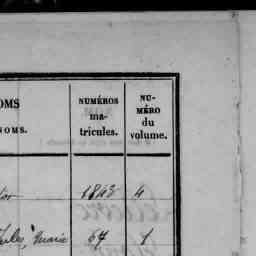 OMS
NOMS.
NUMÉROS
ma-
tricules.
NU-
MÉRO
du
volume.
1843 4
Jules, Marie 67 1